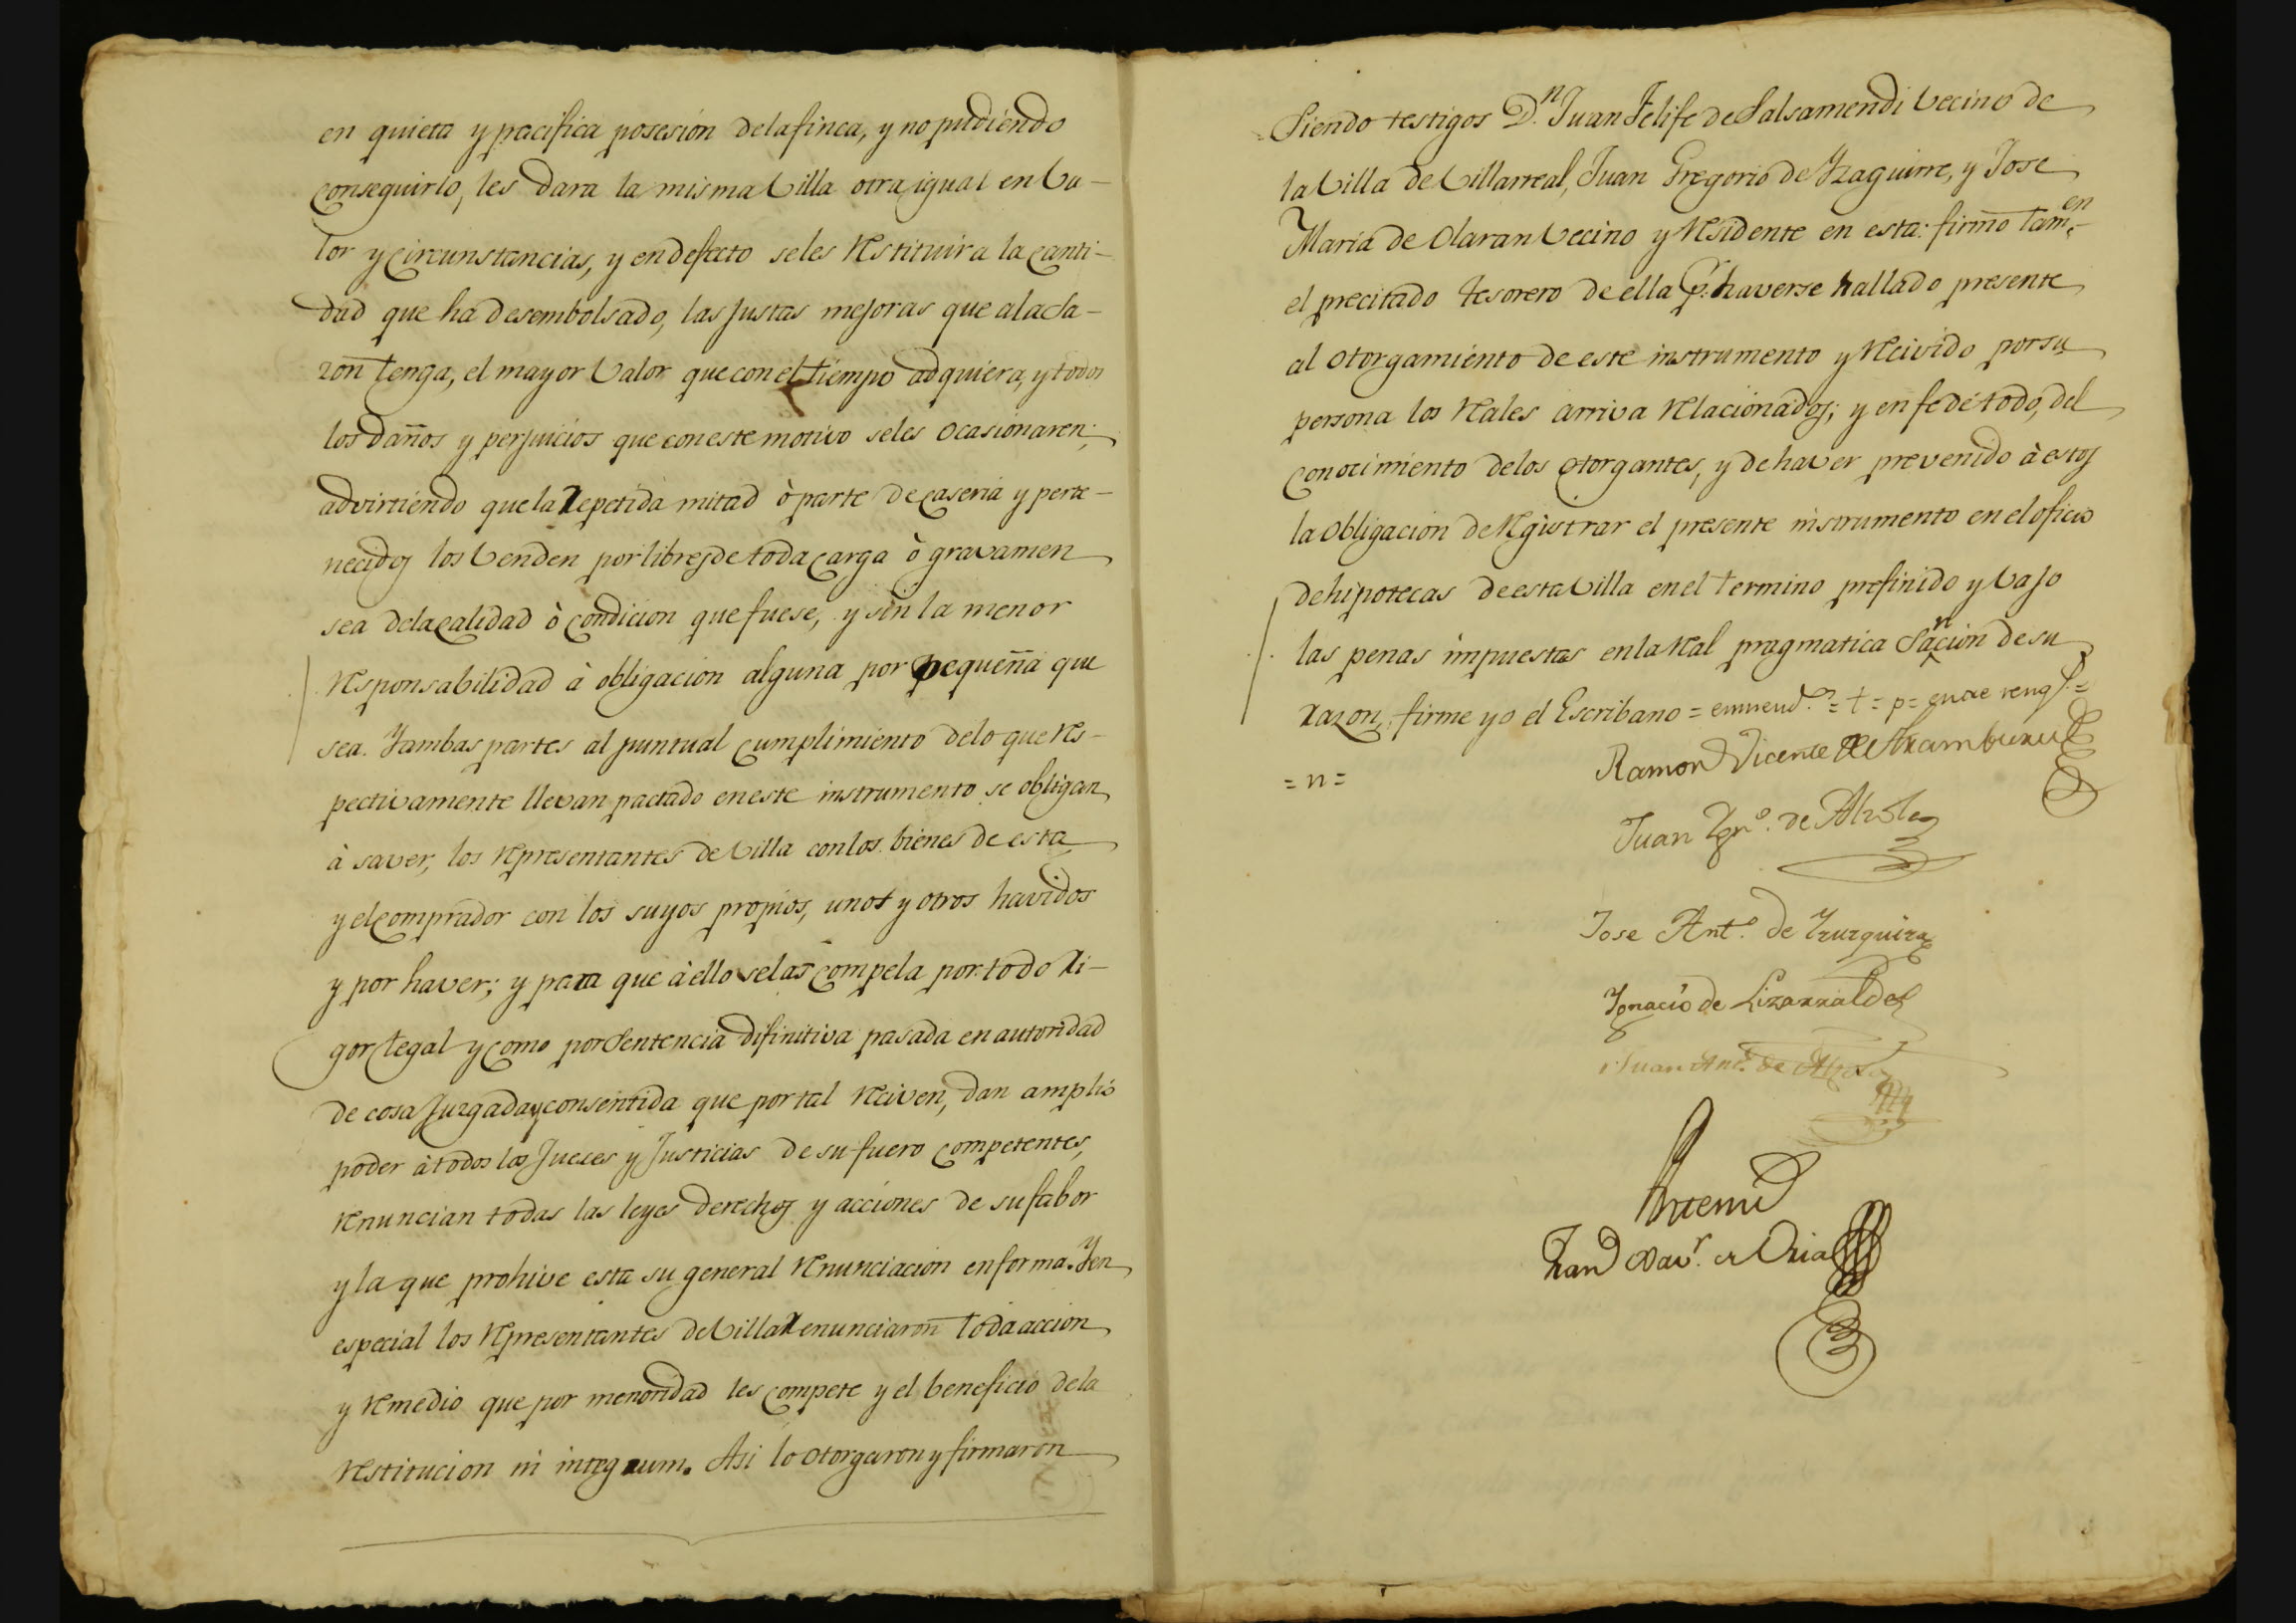 en quieta y pacifica posesion delafinca, y no pudiendo
conseguirlo, les dara la misma Villa otra igual en Va-
lor y circunstancias, y endefecto seles restituira la canti-
dad que ha desembolsado, las justas mejoras que alasa-
zon tenga, el mayor Valor que con el tiempo adquiera, y todos
los daños y perjuicios que coneste motivo seles ocasionaren;
advirtiendo que la repetida mitad ò parte de caseria y perte-
necidos los Venden por libres de toda carga ò gravamen
sea dela calidad ò condicion que fuese, y sin la menor
responsabilidad à obligacion alguna por pequeña que
sea. Yambas partes al puntual cumplimiento delo que res-
pectivamente llevan pactado eneste instrumento se obligan
à saver, los representantes de Villa conlos bienes de esta
y el comprador con los suyos propios, unos y otros havidos
y por haver; y para que à ello selas compela por todo ri-
gor legal y como por Sentencia difinitiva pasada en autoridad
de cosa Juzgada y consentida que por tal reciven, dan amplio
poder à todos los Jueces y Justicias de su fuero competentes,
renuncian todas las leyes derechos y acciones de su fabor
y la que prohive esta su general renunciacion enforma. Yen
especial los representantes de Villa renunciaron toda accion
y remedio que por menoridad les compete y el beneficio dela
restitucion in integrum. Asi lo otorgaron y firmaron
Siendo testigos D.n Juan Felife de Salsamendi Vecino de
la Villa de Villarreal, Juan Gregorio de Yzaguirre, y Jose
Maria de Olaran Vecino y residente en esta: firmo tam.en
el precitado tesorero de ella p.r haverse hallado presente
al otorgamiento de este instrumento y recivido por su
persona los reales arriva relacionados; y en fe de todo, del
conocimiento delos otorgantes, y de haver prevenido à estos
la obligacion de registrar el presente instrumento en el oficio
de hipotecas de esta Villa en el termino prefinido y vajo
las penas impuestas en la real pragmatica Sancion de su
razon, firme yo el Escribano = enmend.o = t = p = entre reng.s =
= n =
Ramon Vicente de Aramburu
Juan Ygn.o de
Jose Ant.o de Yzurquiza
Ygnacio de Lizarralde
Juan Ant.o de
Antemi
Fran.co Xav.r de Oria